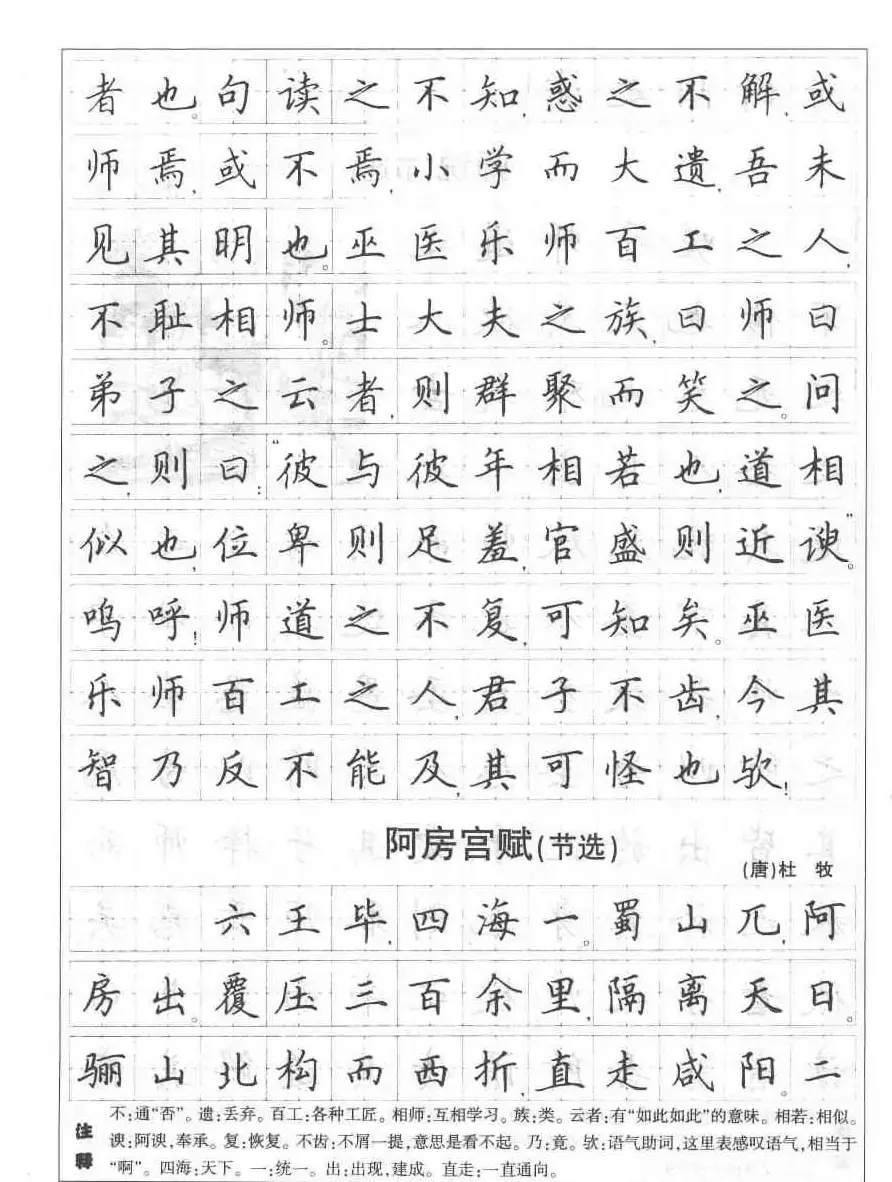 者也。句读之不知,惑之不解,或
师焉,或不焉,小学而大遗,吾未
见其明也。巫医乐师百工之人,
不耻相师。士大夫之族,曰师曰
弟子之云者,则群聚而笑之。问
之,则曰:“彼与彼年相若也,道相
似也,位卑则足羞,官盛则近谀。”
呜呼!师道之不复,可知矣。巫医
乐师百工之人,君子不齿,今其
智乃反不能及,其可怪也欤!
阿房宫赋(节选)
(唐)杜 牧
六王毕,四海一。蜀山兀,阿
房出。覆压三百余里,隔离天日。
骊山北构而西折,直走咸阳。二
注释
不:通“否”。遗:丢弃。百工:各种工匠。相师:互相学习。族:类。云者:有“如此如此”的意味。相若:相似。
谀:阿谀,奉承。复:恢复。不齿:不屑一提,意思是看不起。乃:竟。欤:语气助词,这里表感叹语气,相当于
“啊”。四海:天下。一:统一。出:出现,建成。直走:一直通向。